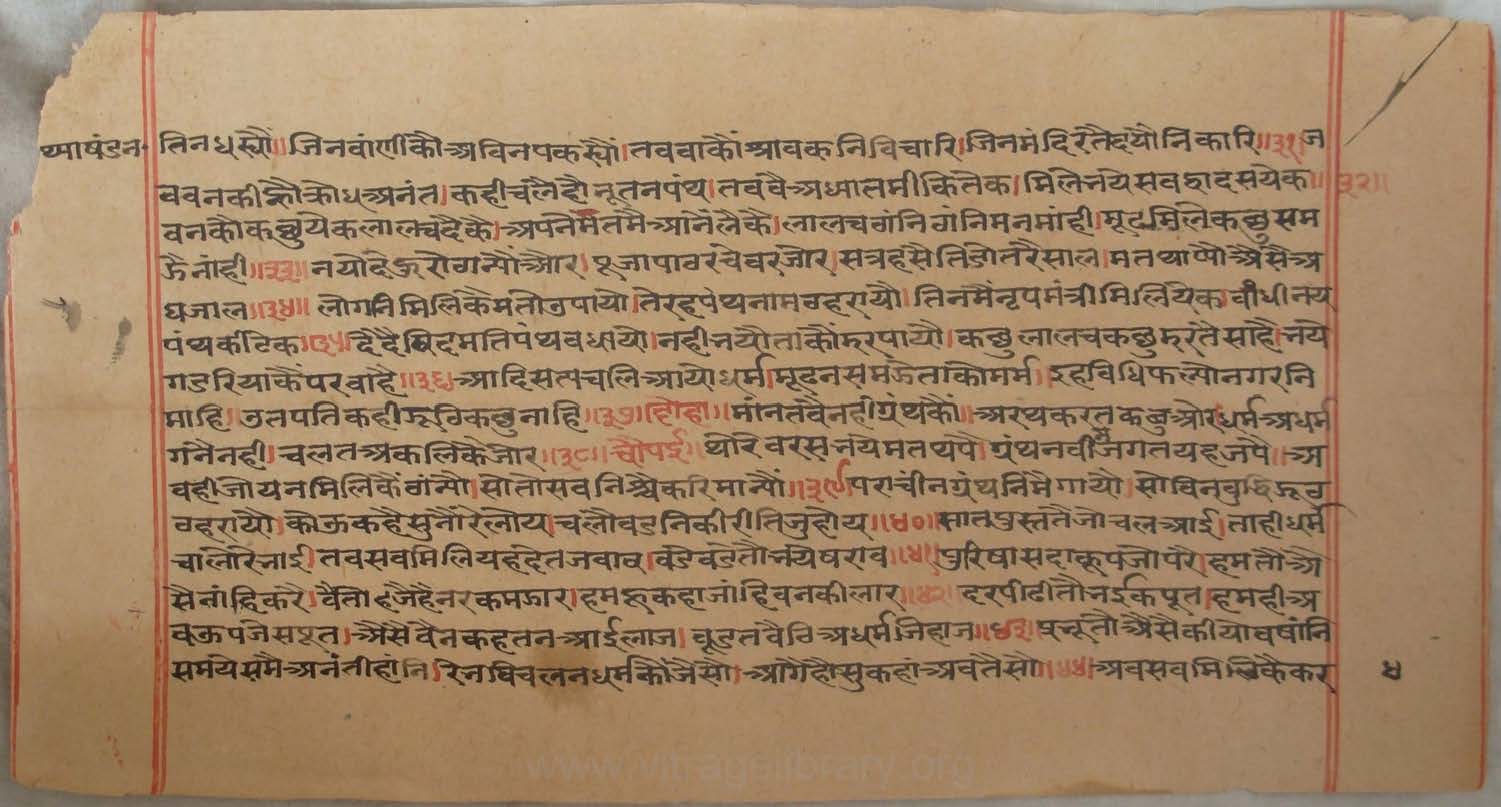 थ्याषंडन
तिन धस्यौं॥ जिनवांणीकौ अविनय कस्यौं। तव वाकौं श्रावकनि विचारि। जिनमंदिरतै दयौ निकारि॥३१॥ ज
व वनकीह्नौ क्रोध अनंत। कही चलैहौ नूतन पंथ। तव वै अध्यातमी कितेक। मिलि नये सव द्वादस येक॥३२॥
वनकौ कछुयेक लालच दैकै। अपनै मतमै आंनै लैकै। लालच गंनि गंनि मनमांही। मूढ मिले कछु सम
ऊै नांही॥३३॥ नयौ दे रोगन्यौं और। पूजापाठ रचे वरजोर। सत्रहसै तिडोतरै साल। मत थाप्यौ असै अ
घजाल॥३४॥ लोगनि मिलिकै मतौ उपायौ। तेरहपंथ नाम ठहरायौ। तिनमैं नृपमंत्री मिलि येक। वांधी नय
पंथकि टेक॥३५॥ दैदै मति पंथ वधायौ। नही नयौ ताकौं डरपायौ। कछु लालच कछु डरतै साहै। नये
गडरियाकै परवाहै॥३६॥ आदि सत्य चलि आयौ धर्म। मूढ न समऊै ताकौ मर्म। इह विधि फैल्यौ नगरनि
माहि। उतपति कही ऊूठि कछु नाहि॥३७॥ दोहा॥ मांनत वै नही ग्रंथकौं। अरथ करत कछु और। धर्म अधर्म
गंनै नही। चलत अकलिकै जोर॥३८॥ चौपई॥ थोरे वरस नयै मत थपै। ग्रंथ नवीन जगत यह जपै। अ
वही जो यन मिलिकै गंन्यौ। सो तो सव निश्चै करि मान्यौं॥३९॥ पराचीन ग्रंथनिमै गायौ। सो विनवुद्धि ऊूठ
ठहरायौ। कोऊ कहै सुनौं रे लोय। चलौ वडनिकी रीति जु होय॥४०॥ सात पुस्ततै जो चल आई। ताही धर्म
चालौ रे भाई। तव सव मिलि यह देत जवाव। वडे वडे तौ नये षराव॥४१॥ पुरिषा सदा कूप जो परे। हम तौ अै
सै नांहि करै। वै तो ह्वै नरक मऊार। हम कहा जांहि वनकी लार॥४२॥ हर पीढी तौ नई कपूत। हमही अ
व ऊपजे सपूत। असै वैन कहत न आई लाज। वूडत वैठि अधर्म जिहाज॥४३॥ प्रन्नू तौ असै कीयौ वषांनि
समये समै अनंती हांनि। रिन विचलन धर्मकौ जैसो। आगै होसु कहां अव तैसौ॥४४॥ अव सव मिलिकै कर
४
www.vitragelibrary.org